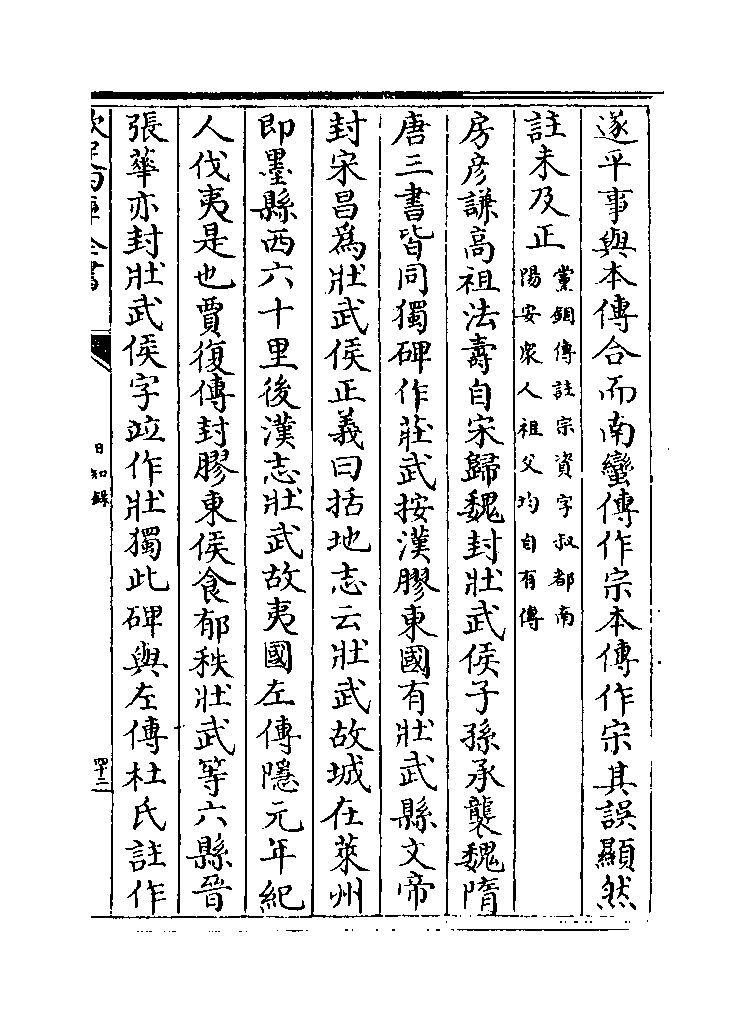 遂平事與本傳合而南蠻傳作宗本傳作宋其誤顯然
註未及正黨錮傳註宗資字叔都南陽安衆人祖父均自有傳
房彦謙高祖法壽自宋歸魏封壯武侯子孫承襲魏隋
唐三書皆同獨碑作莊武按漢膠東國有壯武縣文帝
封宋昌為壯武侯正義曰括地志云壯武故城在萊州
即墨縣西六十里後漢志壯武故夷國左傳隱元年紀
人伐夷是也賈復傳封膠東侯食郁秩壯武等六縣晉
張華亦封壯武侯字竝作壯獨此碑與左傳杜氏註作
欽定四庫全書
日知録
四十三